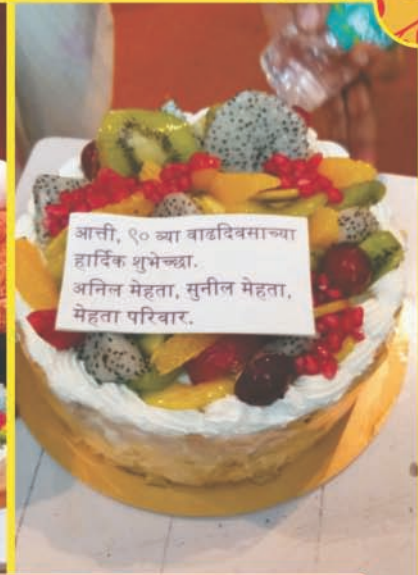 आत्ती, ९० व्या वाढदिवसाच्या
हार्दिक शुभेच्छा.
अनिल मेहता, सुनील मेहता,
मेहता परिवार.